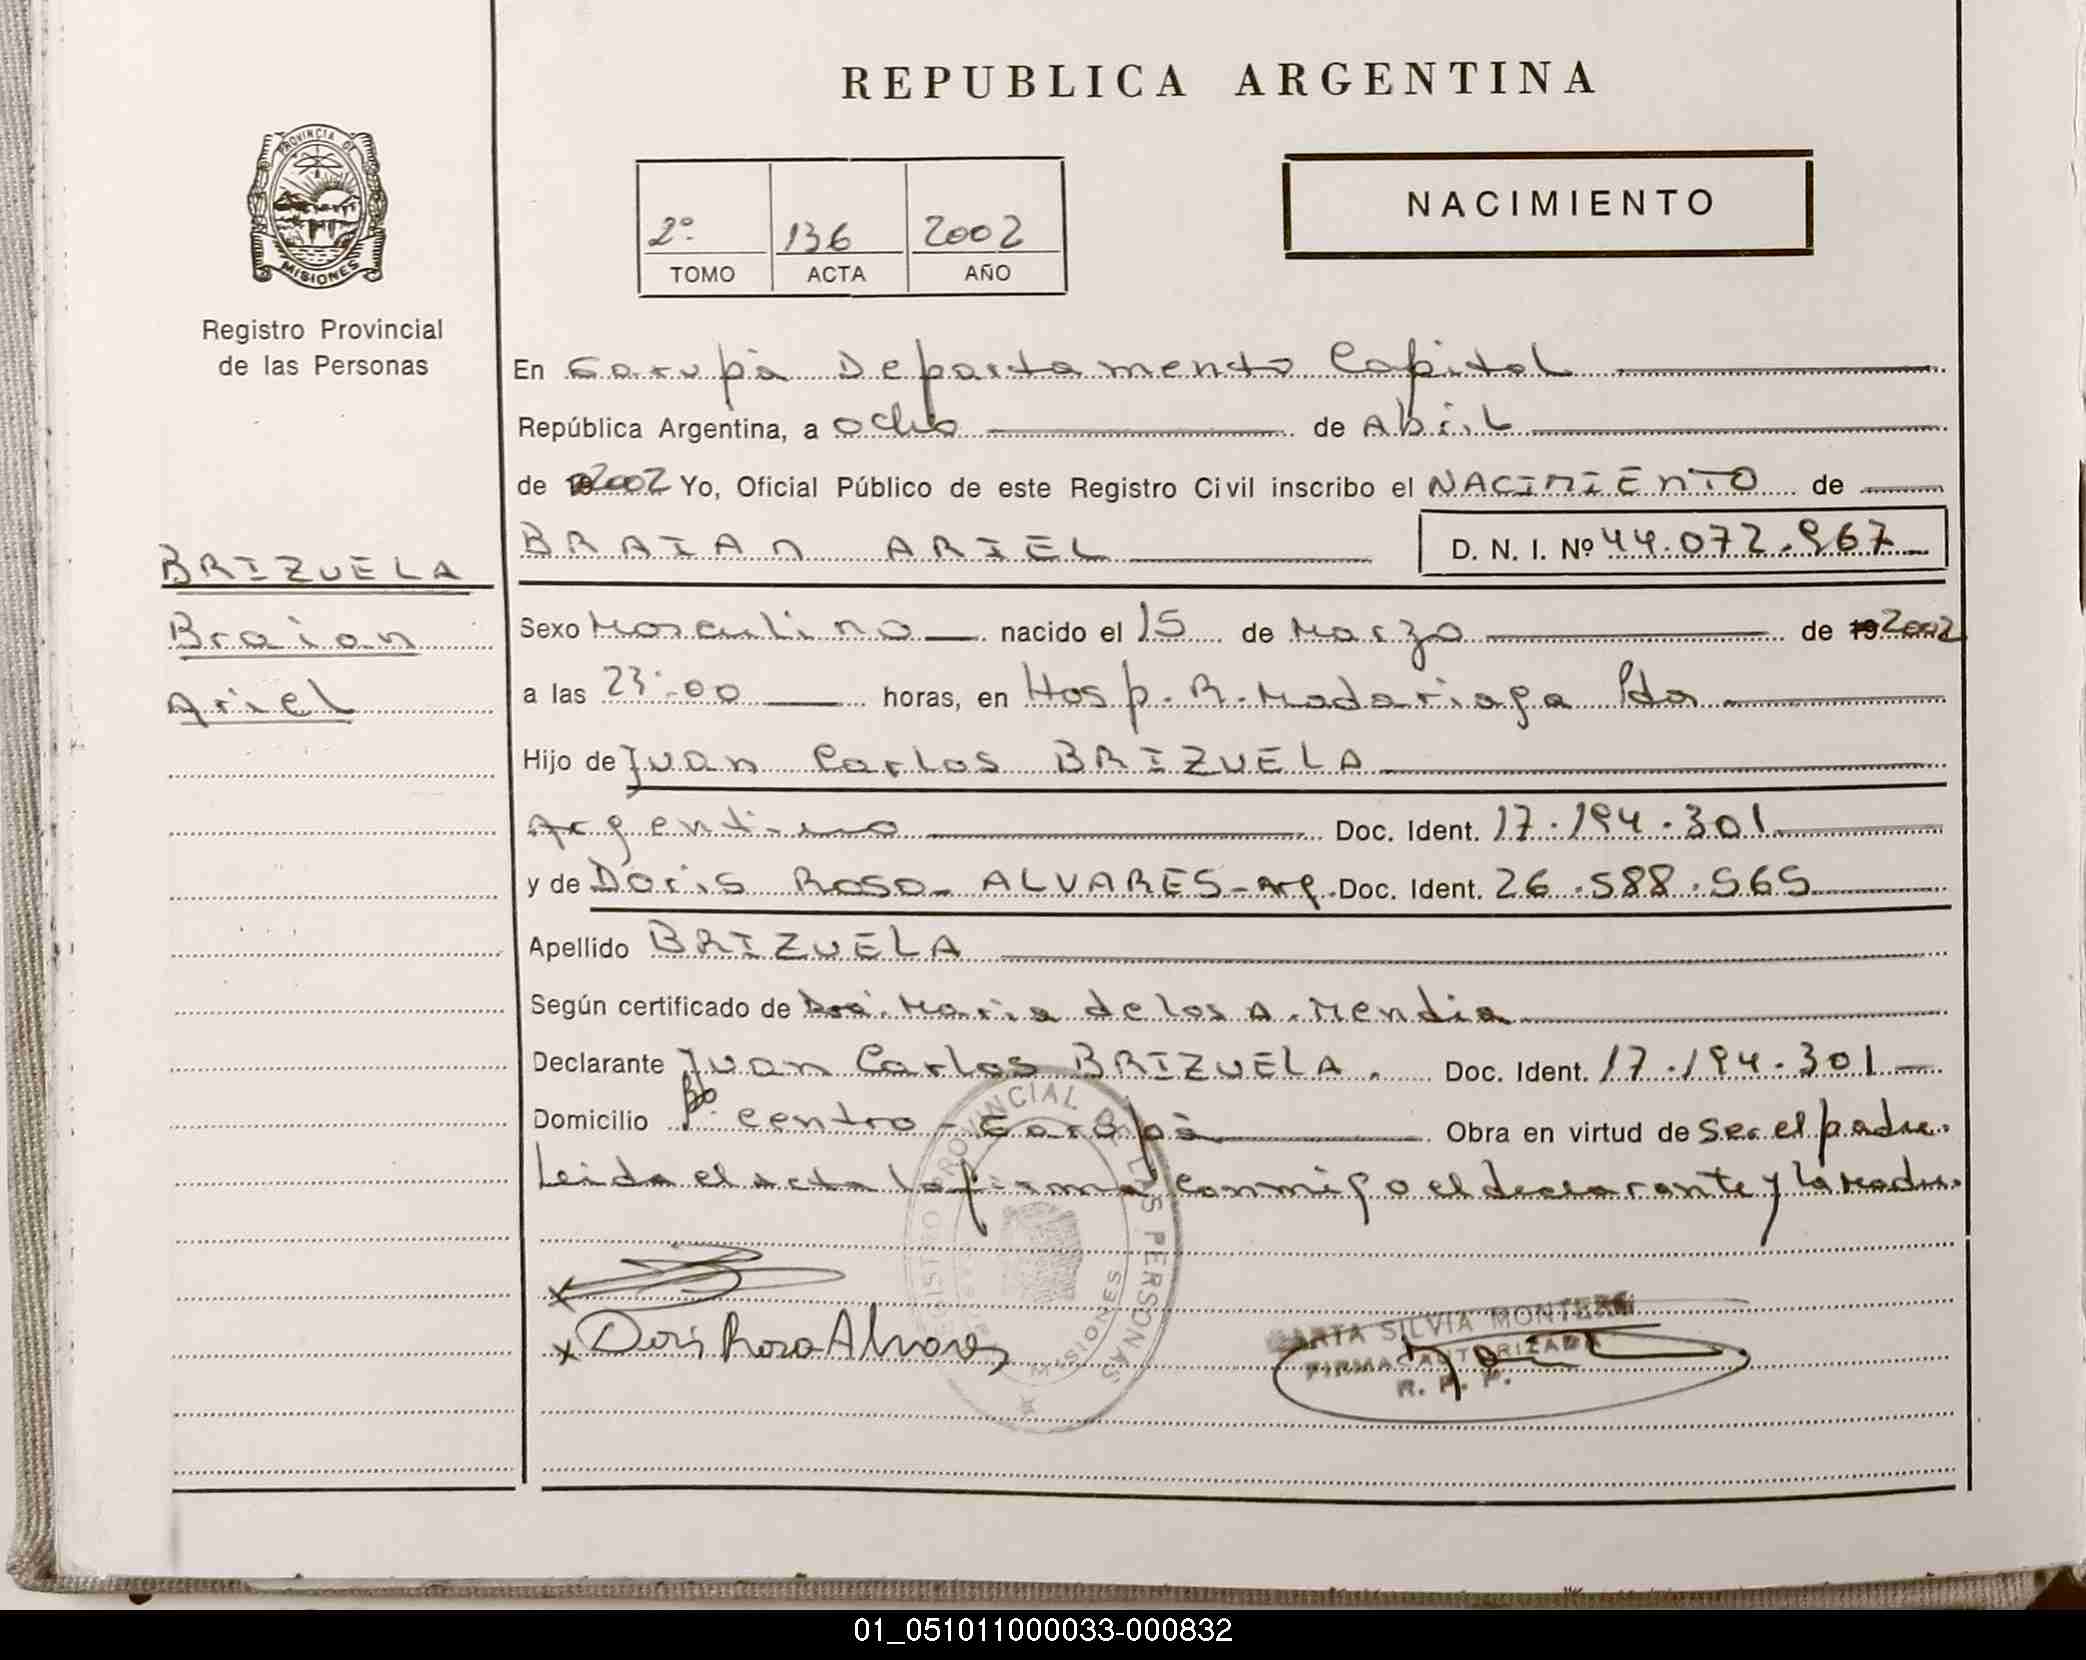 REPUBLICA ARGENTINA
PROVINCIA DE
MISIONES
Registro Provincial
de las Personas
2º 136 2002
TOMO ACTA AÑO
NACIMIENTO
En Garupá Departamento Capital
República Argentina, a ocho de Abril
de 2002 Yo, Oficial Público de este Registro Civil inscribo el NACIMIENTO de
BRAIAN ARIEL D. N. I. Nº 44.072.967
BRIZUELA
Braian
Ariel
Sexo Masculino nacido el 15 de Marzo de 19 2002
a las 23:00 horas, en Hosp. R. Madariaga Pdas
Hijo de Juan Carlos BRIZUELA
Argentino Doc. Ident. 17.194.301
y de Doris Rosa ALVARES - Arg. Doc. Ident. 26.588.565
Apellido BRIZUELA
Según certificado de Dra. Maria de los A. Mendia
Declarante Juan Carlos BRIZUELA. Doc. Ident. 17.194.301
Domicilio Bº Centro - Garupá Obra en virtud de ser el padre.
Leida el acta la firma conmigo el declarante y la Madre.
REGISTRO PROVINCIAL DE LAS PERSONAS
MISIONES
x
x Doris Rosa Alvares
MARTA SILVIA MONTERO
FIRMA AUTORIZADA
R. P. P.
01_051011000033-000832